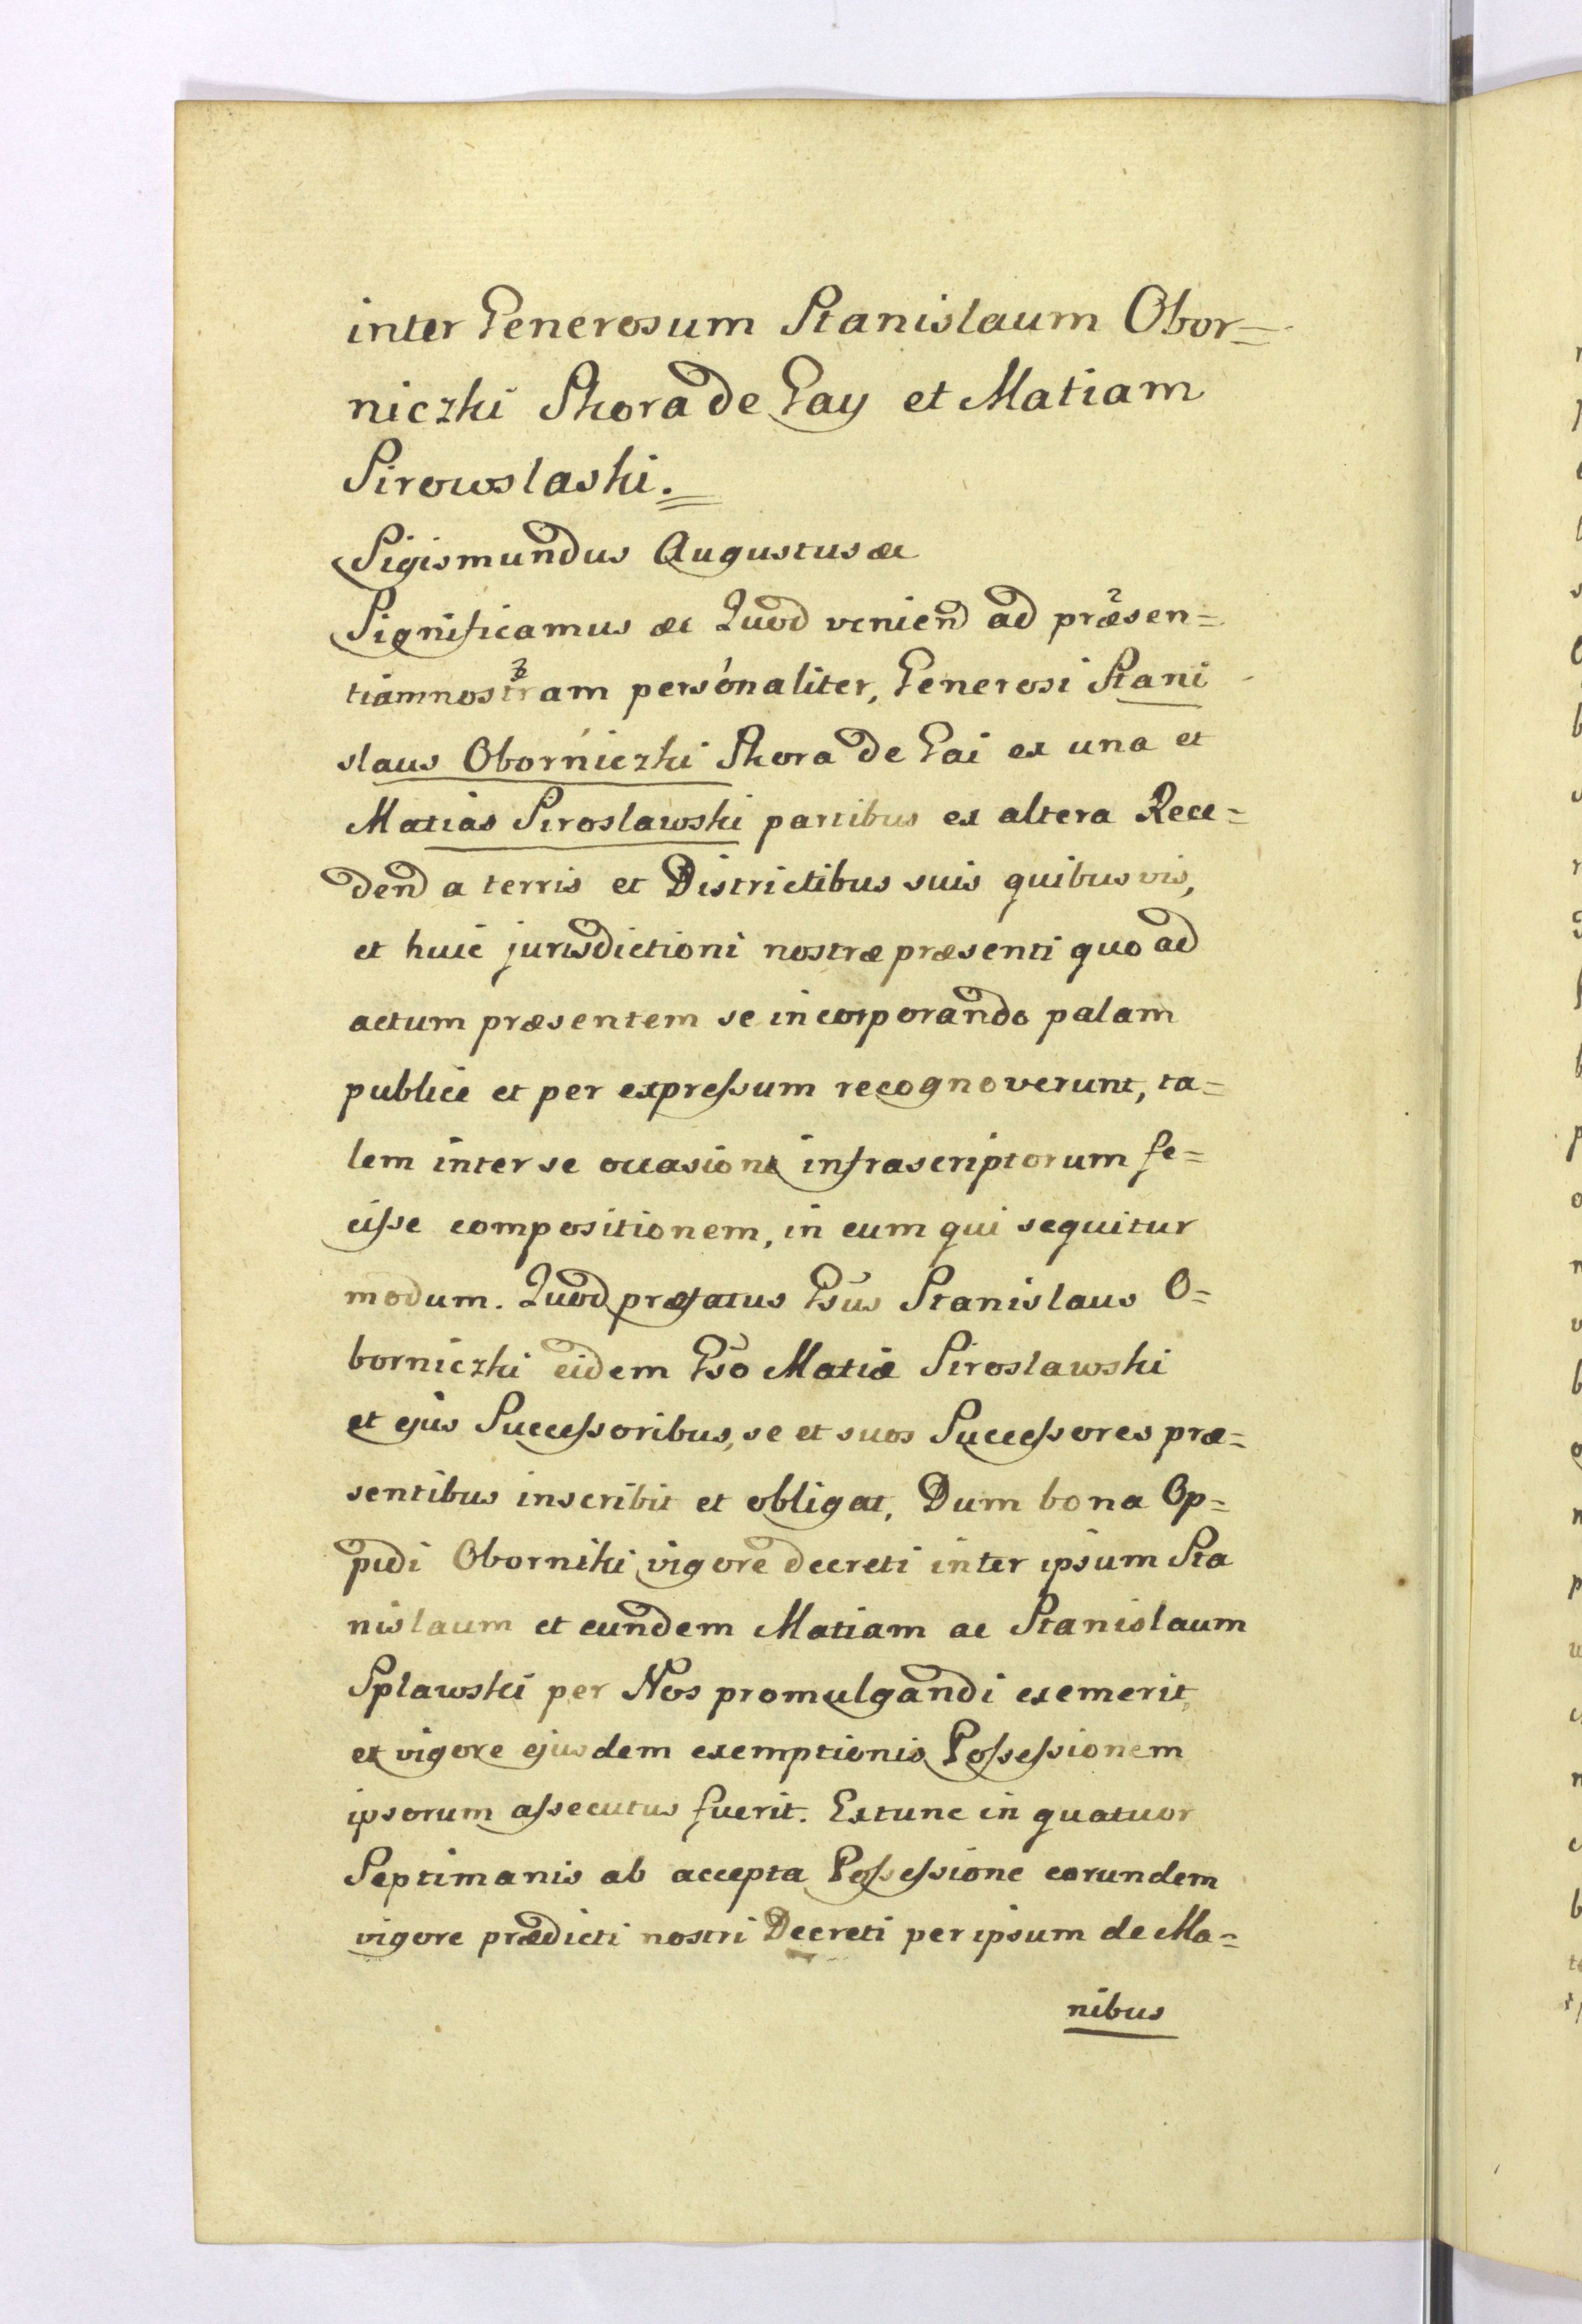 inter Generosum Stanislaum Obor=
niczki Skora de Gay et Matiam
Sirowslaski.
Sigismundus Augustus &c
Significamus &c Quod veniend ad præsen=
tiam nostram personaliter, Generosi Stani
slaus Oborniczki Skora de Gai ex una et
Matias Siroslawski partibus ex altera Rece=
dend a terris et Districtibus suis quibusvis,
et huic jurisdictioni nostræ præsenti quo ad
actum præsentem se incorporando palam
publice et per expressum recognoverunt, ta=
lem inter se occasione infrascriptorum fe=
cisse compositionem, in eum qui sequitur
modum. Quod præfatus Gsus Stanislaus O=
borniczki eidem Gso Matiæ Siroslawski
et ejus Successoribus, se et suos Successores præ=
sentibus inscribit et obligat, Dum bona Op=
pidi Oborniki vigore decreti inter ipsum Sta
nislaum et eundem Matiam ac Stanislaum
Splawski per Nos promulgandi exemerit,
et vigore ejusdem exemptionis Possessionem
ipsorum assecutus fuerit. Extunc in quatuor
Septimanis ab accepta Possessione eorundem
vigore prædicti nostri Decreti per ipsum de Ma=
nibus